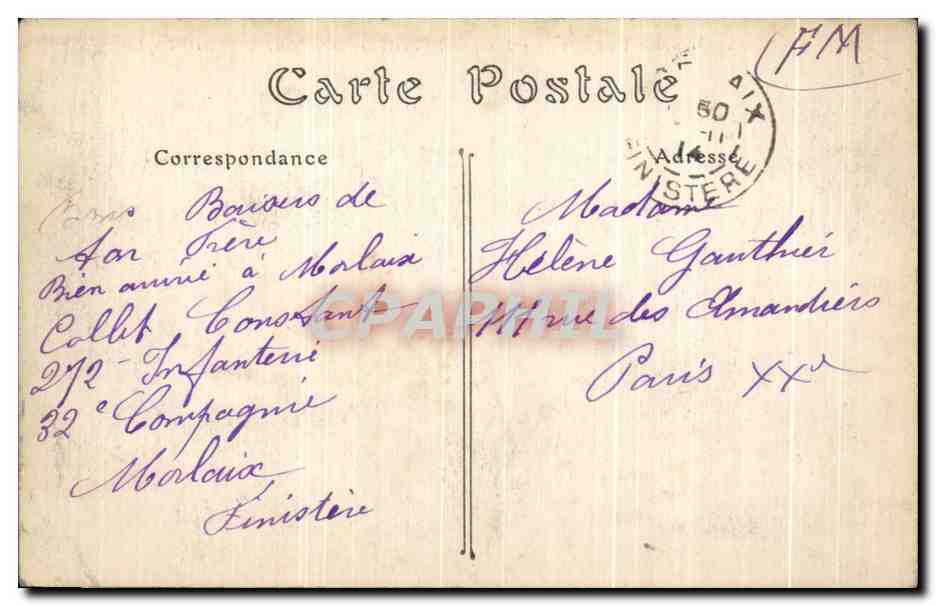 Carte Postale
FM
AIX
30
11
14
FINISTERE
Correspondance
Adresse
Baisers de
ton Frère
Bien arrivé à Morlaix
Collet Constant
272 - Infanterie
32e Compagnie
Morlaix
Finistère
Madame
Hélène Gauthier
rue des Amandiers
Paris XXe
CPAPHIL